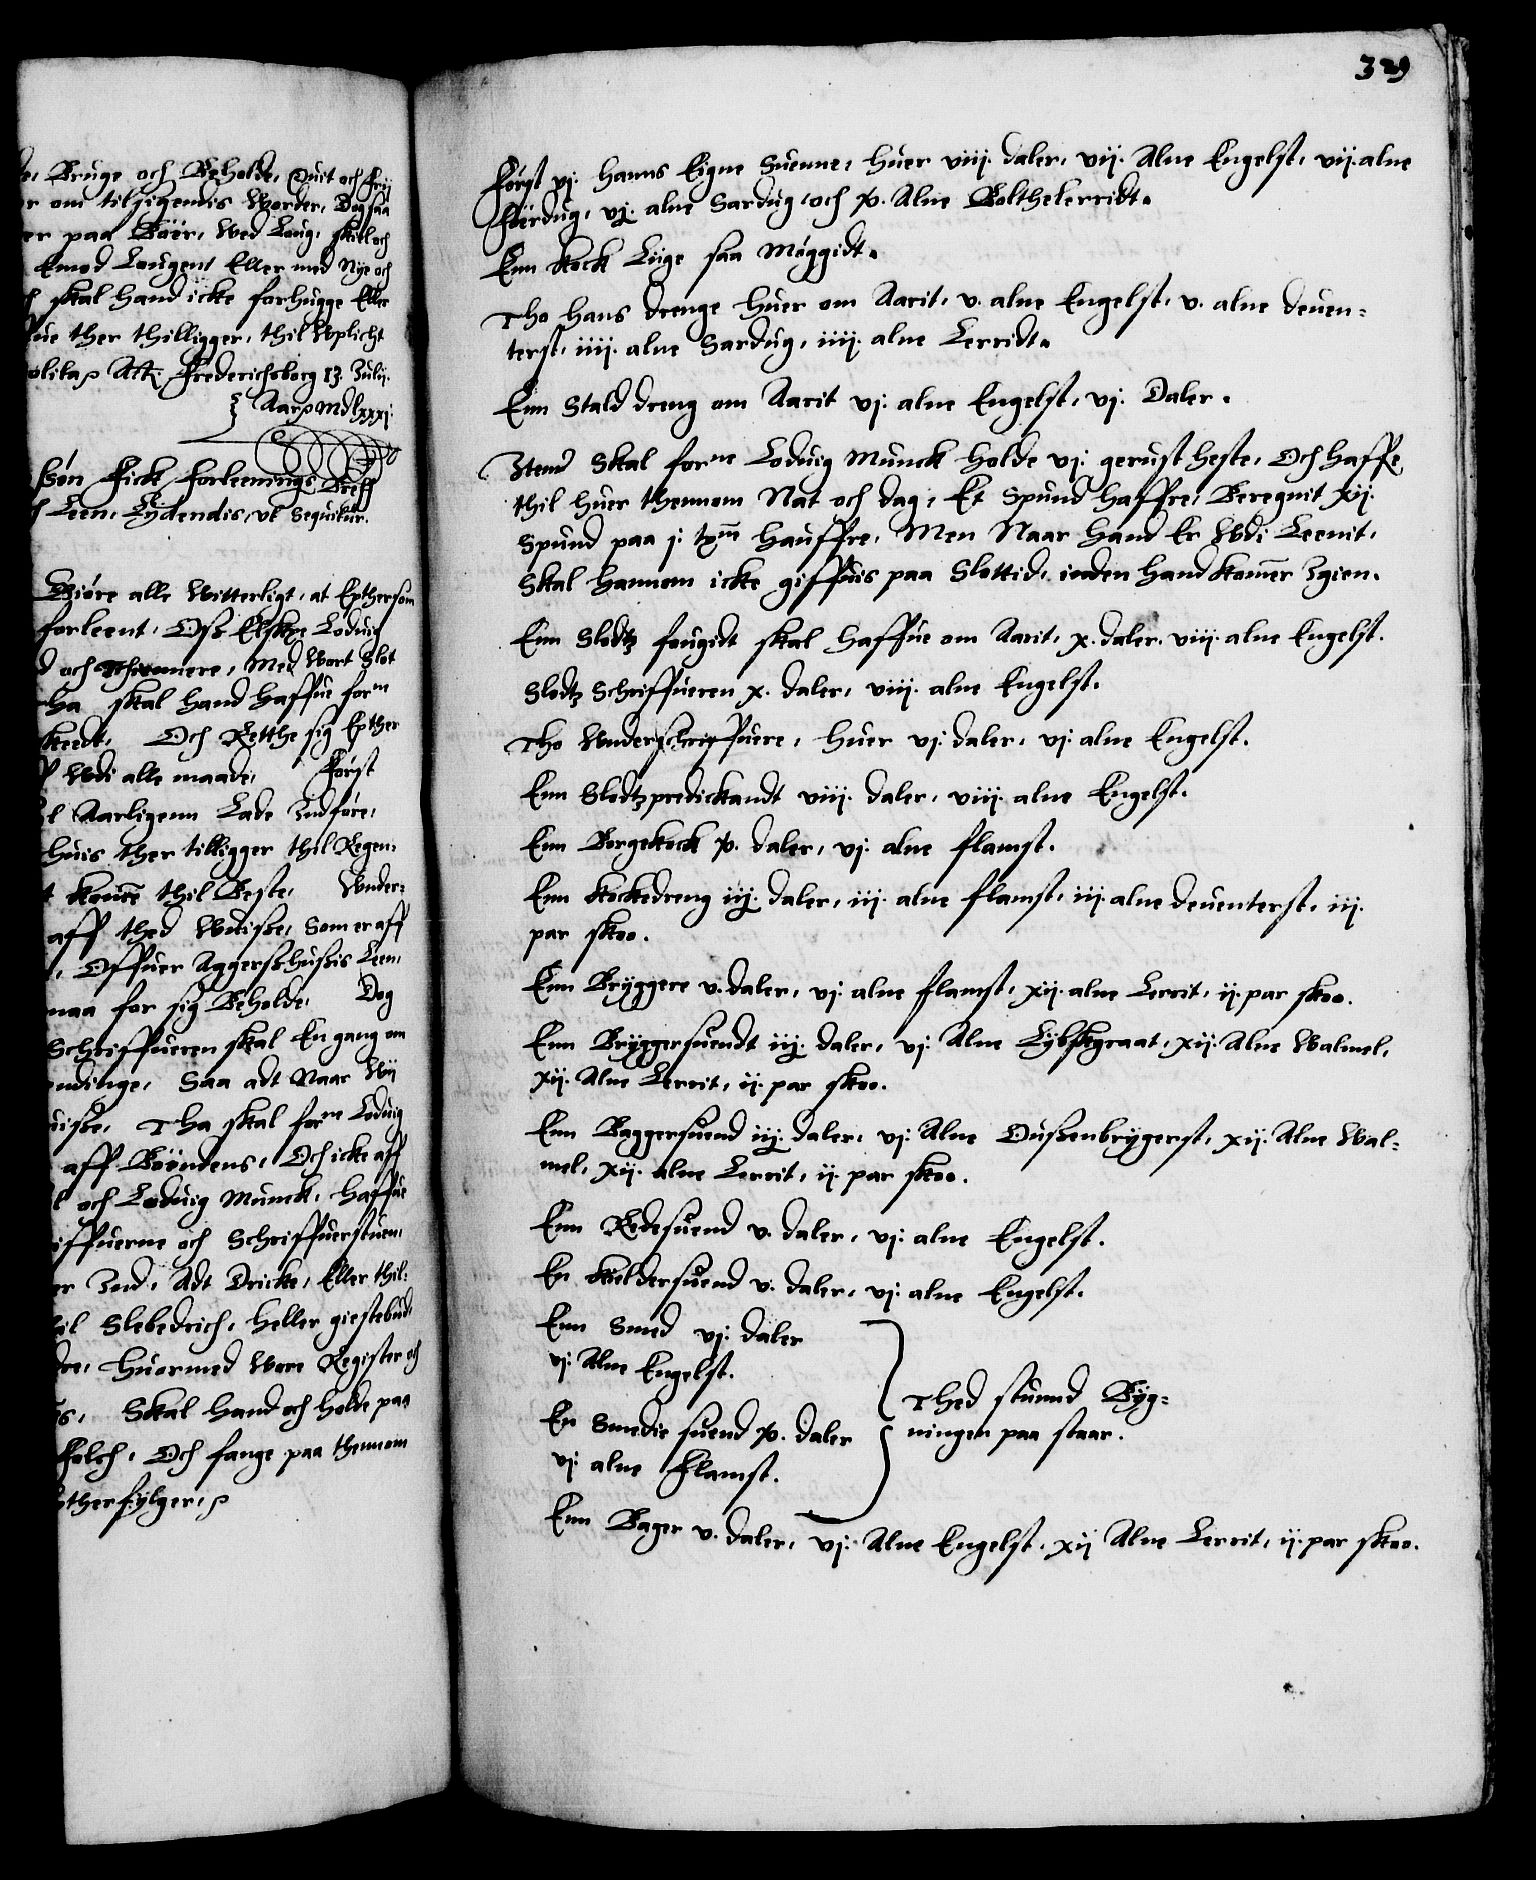 Bruge och Beholde, Quit och Frij
om tilsigendis Worder, Dog saa
paa Böer, Wed Laug, skiel och
Emod Lougenn Eller med Nye och
skal Hand icke forhugge Eller
ther thilligger, thil Wplicht
Frederichsborg 13. Julij.
Aar MDlxxxj.
Sön Fick Forleenings Breff
Leen, Lydendis, vt Sequitur.
Giöre alle Witterligt, at Epthersom
forleent, Oss Elske Loduig
och Mend Wort Slot
skal Hand Haffue forne
Och Retthe sig Epther
Wdi alle maade, Först
Aarligenn Lade Indföre,
Huis ther tilligger thil Regen-
thil Beste, Wnder-
aff thed Wuisse, Som er aff
Offuer Aggershussis Leen,
maa for sig Beholde, Dog
Schriffueren skal En gang om
Saa adt Naar Wij
Tha skal forne Loduig
aff Bööndens, Och icke aff
och Loduig Munck, Haffue
och Schriffuerstuen,
Ind, Adt Dricke, Eller thil-
Slebedrich, Heller giestebud,
Huormed Wore Register och
Skal Hand och Holde paa
Folch, Och fange paa thennom
therfylger,
329
Först vj. Hanns Eigne Suenne, Huer viij. daler, vij. Alne Engelst, vij. alne
Fördug, vj. alne Sardug, och x. Alne Bolthelerridt.
Enn Kock Liige saa Möggidt.
Tho Hans drenge Huer om Aarit, v. alne Engelst, v. alne deuen-
terst, iiij. alne Sardug, iiij. alne Lerridt.
Enn Stald dreng om Aarit vj. alne Engelst, vj. Daler.
Item Skal forne Loduig Munck Holde vj. gerust Heste, Och Haffe
thil Huer thennom Nat och dag, Et Spund Haffre, Beregnit xij.
Spund paa j. Hauffre, Men Naar Hand Er Wdi Leenit,
Skal Hannom icke giffuis paa Slottid, inden Hand Kommer Igien.
Enn Slodtz fougidt skal Haffue om Aarit, x. daler. viij. alne Engelst.
Slodtz Schriffueren x. daler, viij. alne Engelst.
Tho Wnderschriffuere, Huer vj. daler, vj. alne Engelst.
Enn Slodtzpredickandt viij. daler, viij. alne Engelst.
Enn Borgekock x. daler, vj. alne flamst.
Enn Kockedreng iij. daler, iij. alne flamst, iij. alne deuenterst, iij.
par skoo.
Enn Bryggere v. daler, vj. alne flamst, xij. alne Lerrit, ij. par skoo.
Enn Bryggersuendt iij. daler, vj. Alne Lybskgraat, xij. Alne Walmel,
xij. Alne Lerrit, ij. par skoo.
Enn Baggersuend iij. daler, vj. Alne Oussenbrygerst, xij. Alne Wal-
mel, xij. alne Lerrit, ij. par skoo.
Enn Redesuend v. daler, vj. alne Engelst.
En Kieldersuend v. daler, vj. alne Engelst.
Enn Smed vj. daler
vj. Alne Engelst.
En Smedie suend x. daler
vj. alne Flamst.
Thed stunnd Byg-
ningen paa staar.
Enn Bager v. daler, vj. Alne Engelst. xij Alne Lerrit, ij. par skoo.